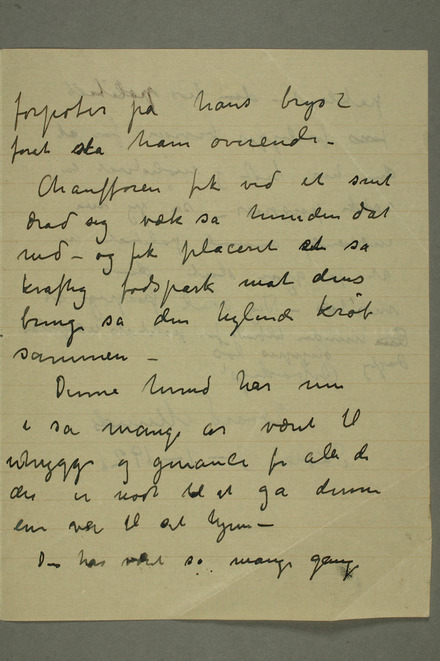 forpoter på hans bryst
foret sta ham overende -
Chaufføren fik ved et snit
drad sig væk så hunden dat
ned - og fik placeret et så
kraftig fodspark mod dens
bringe så den hylende krøb
sammen -
Denne hund har nu
i så mange år været til
uhygge og genance for alle de
der er nødt til at gå denne
ene vej til et hjem -
Der har været så mange gange